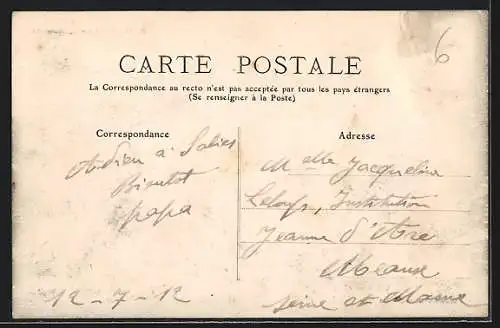 6
CARTE POSTALE
La Correspondance au recto n'est pas acceptée par tous les pays étrangers
(Se renseigner à la Poste)
Correspondance
Adresse
Adieu à Salies
Bientôt
papa
12-7-12
Melle Jacqueline
Institution
Jeanne d'Arc
Meaux
Seine et Marne